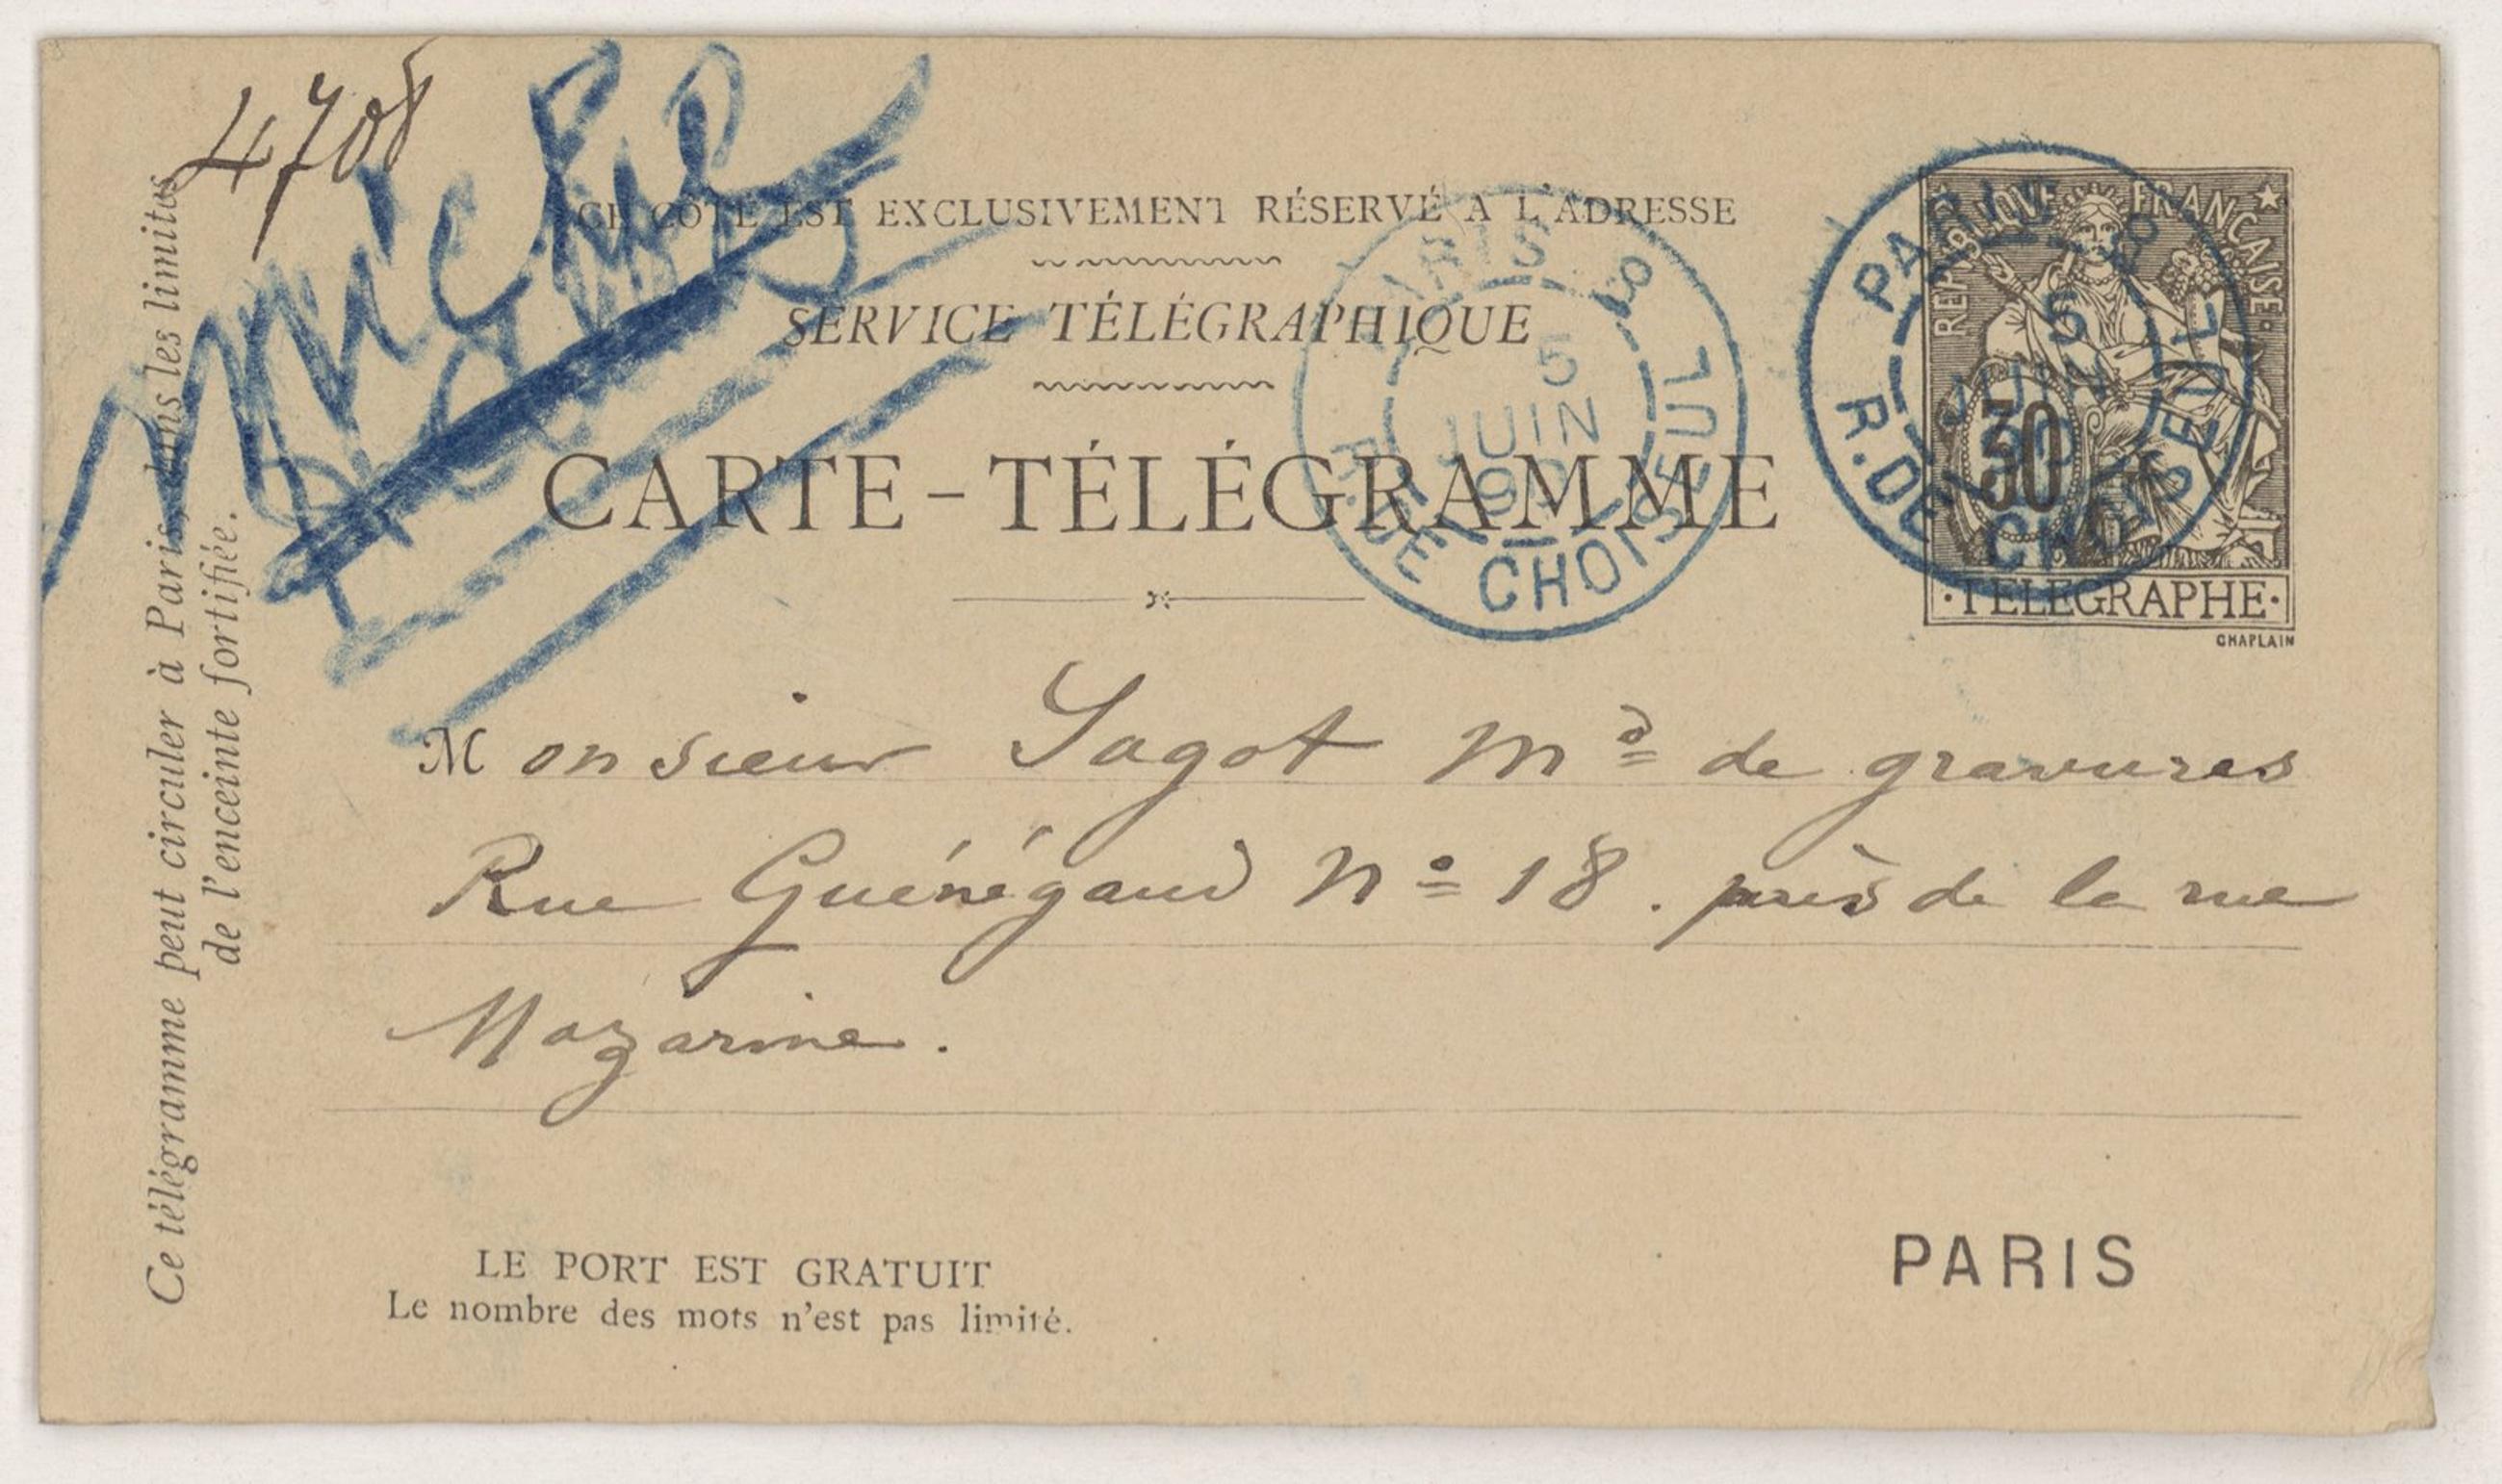 4708
CE CÔTÉ EST EXCLUSIVEMENT RÉSERVÉ A L'ADRESSE
SERVICE TÉLÉGRAPHIQUE
CARTE-TÉLÉGRAMME
PARIS 8
5
JUIN
90
R. DE CHOISEUL
PARIS 8
5
JUIN
90
R. DE CHOISEUL
RÉPUBLIQUE FRANÇAISE
30
TÉLÉGRAPHE
CHAPLAIN
Ce télégramme peut circuler à Paris, dans les limites
de l'enceinte fortifiée.
Monsieur Sagot Md de gravures
Rue Guénégaud No 18. près de la rue
Mazarine.
LE PORT EST GRATUIT
Le nombre des mots n'est pas limité.
PARIS